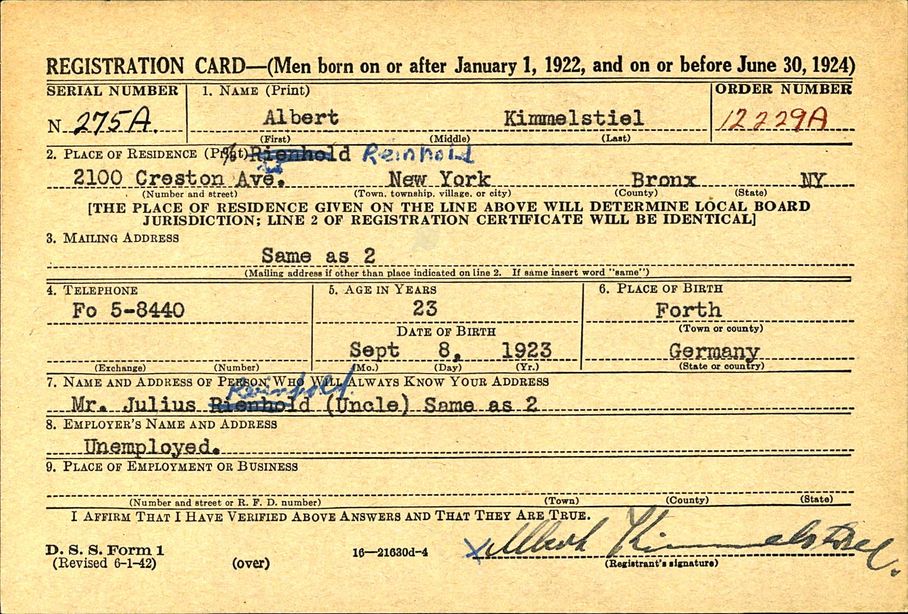 REGISTRATION CARD—(Men born on or after January 1, 1922, and on or before June 30, 1924)
SERIAL NUMBER 1. NAME (Print) ORDER NUMBER
N 275A. Albert Kimmelstiel 12229A
(First) (Middle) (Last)
2. PLACE OF RESIDENCE (Print) c/o Rienhold Reinhold
2100 Creston Ave. New York Bronx NY
(Number and street) (Town, township, village, or city) (County) (State)
[THE PLACE OF RESIDENCE GIVEN ON THE LINE ABOVE WILL DETERMINE LOCAL BOARD
JURISDICTION; LINE 2 OF REGISTRATION CERTIFICATE WILL BE IDENTICAL]
3. MAILING ADDRESS
Same as 2
(Mailing address if other than place indicated on line 2. If same insert word "same")
4. TELEPHONE 5. AGE IN YEARS 6. PLACE OF BIRTH
Fo 5-8440 23 Forth
DATE OF BIRTH (Town or county)
Sept 8, 1923 Germany
(Exchange) (Number) (Mo.) (Day) (Yr.) (State or country)
7. NAME AND ADDRESS OF PERSON WHO WILL ALWAYS KNOW YOUR ADDRESS
Reinhold
Mr. Julius Rienhold (Uncle) Same as 2
8. EMPLOYER'S NAME AND ADDRESS
Unemployed.
9. PLACE OF EMPLOYMENT OR BUSINESS
(Number and street or R. F. D. number) (Town) (County) (State)
I AFFIRM THAT I HAVE VERIFIED ABOVE ANSWERS AND THAT THEY ARE TRUE.
D. S. S. Form 1 16—21630d-4 X Albert Kimmelstiel.
(Revised 6-1-42) (over) (Registrant's signature)